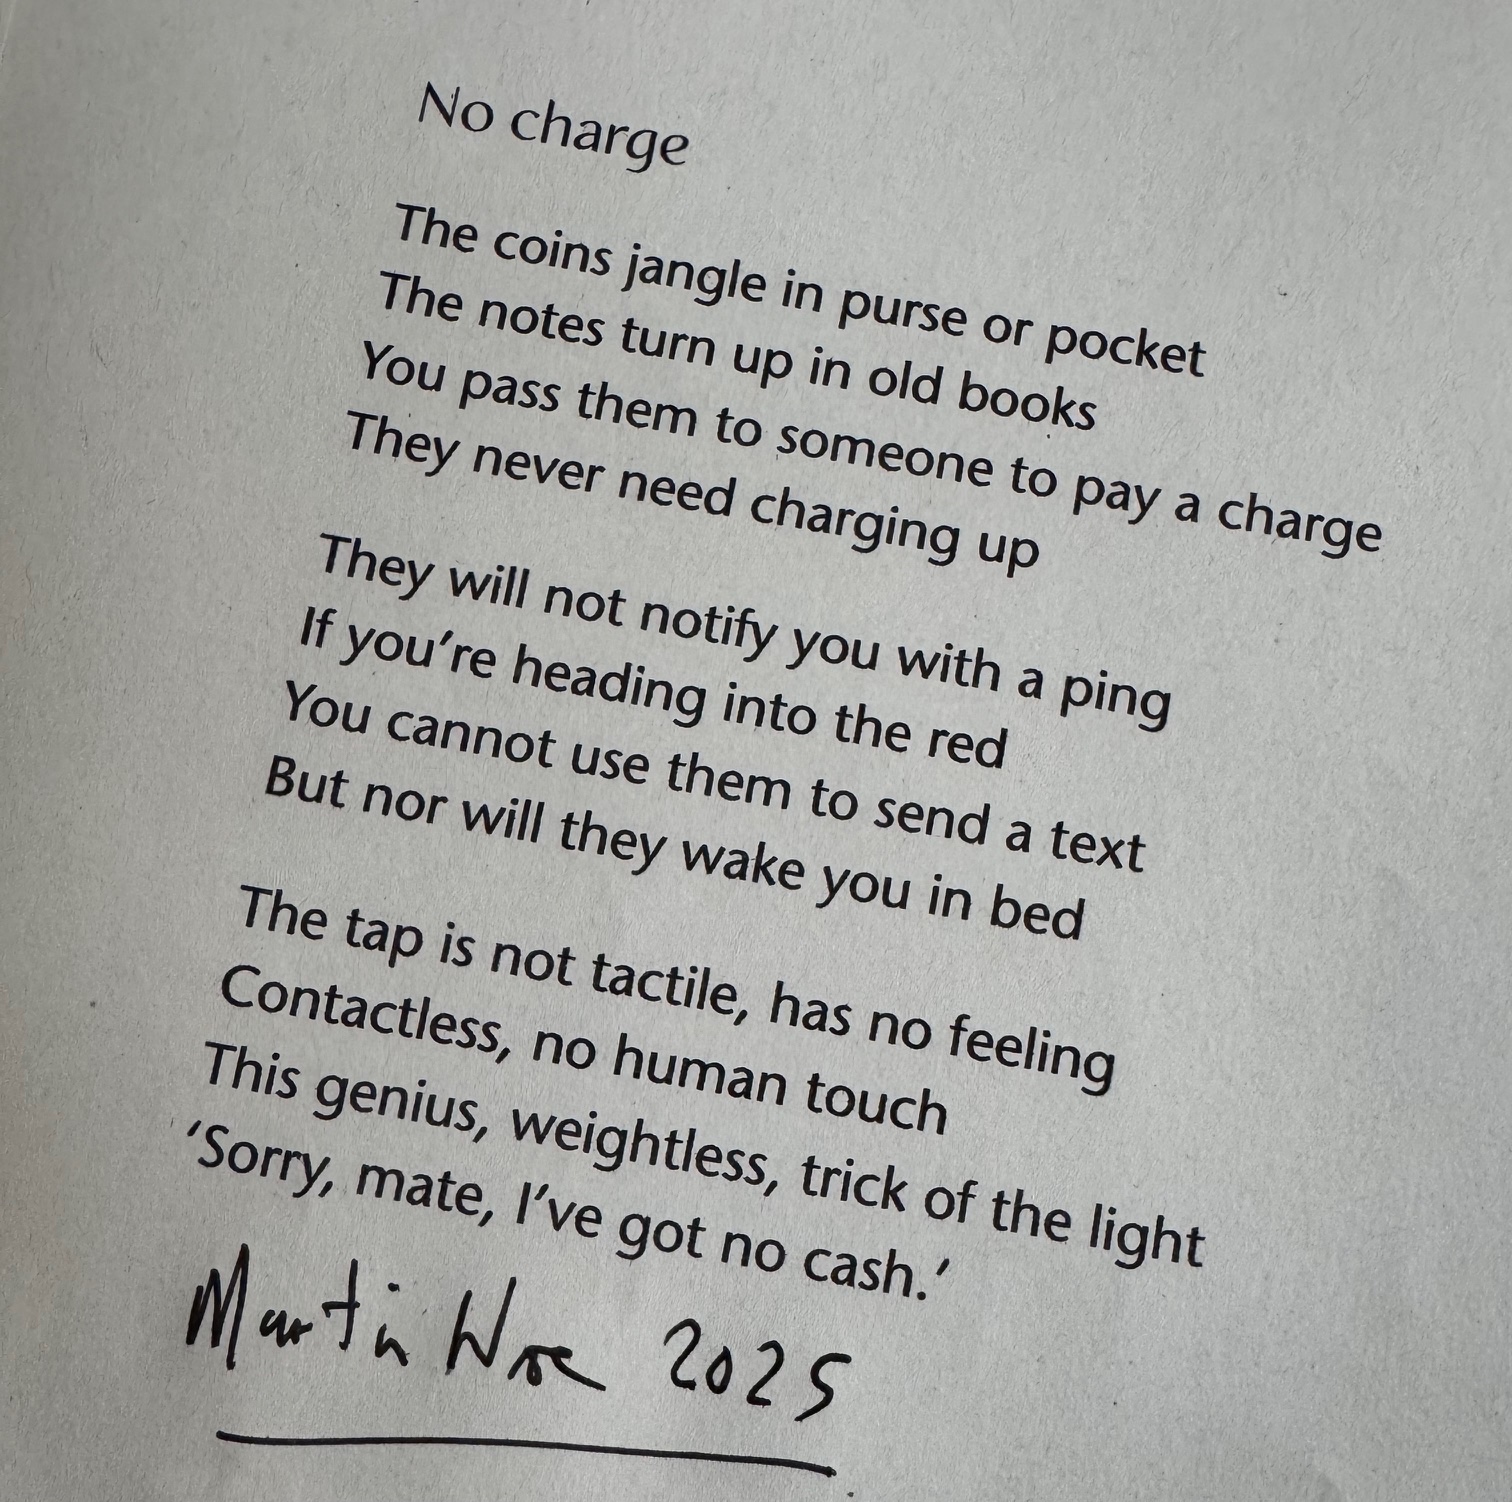 No charge
The coins jangle in purse or pocket
The notes turn up in old books
You pass them to someone to pay a charge
They never need charging up
They will not notify you with a ping
If you’re heading into the red
You cannot use them to send a text
But nor will they wake you in bed
The tap is not tactile, has no feeling
Contactless, no human touch
This genius, weightless, trick of the light
‘Sorry, mate, I’ve got no cash.’
Martin Wroe 2025